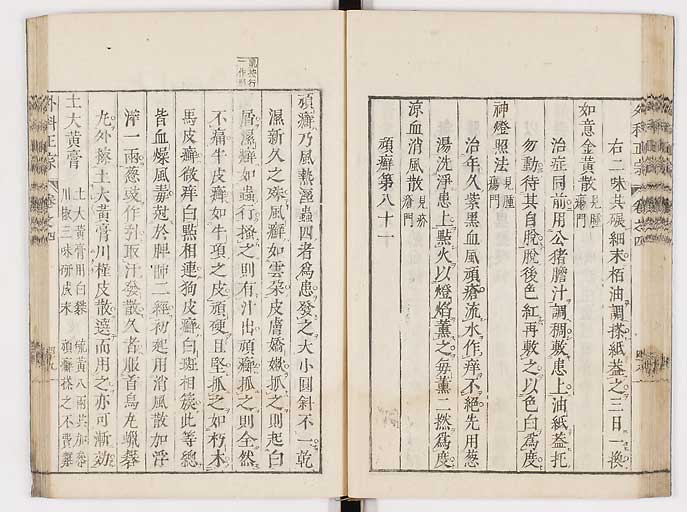 外科正宗 卷之四
右二味共碾細末栢油調搽紙葢之三日一換
如意金黃散 見腫瘍門
治症同前用公猪膽汁調稠敷患上油紙葢扎
勿動待其自脫脫後色紅再敷之以色白爲度
神燈照法 見腫瘍門
治年久紫黑血風頑瘡流水作痒不絕先用葱
湯洗淨患上點火以燈焰薰之每薰二撚爲度
凉血消風散 見疥瘡門
頑癬第八十一
頑癬乃風熱濕蟲四者爲患發之大小圓斜不一乾
濕新久之殊風癬如雲朶皮膚嬌嫩抓之則起白
屑濕癬如蟲行搔之則有汁出頑癬抓之則全然
不痛牛皮癬如牛項之皮頑硬且堅抓之如朽木
馬皮癬微痒白點相連狗皮癬白斑相簇此等總
皆血燥風毒尅於脾肺二經初起用消風散加浮
萍一兩葱豉作引取汗發散久者服首烏丸蠟礬
丸外擦土大黃膏川槿皮散選而用之亦可漸効
土大黃膏 土大黃膏用白礬 硫黃八兩共加
川椒三味研成末 頑癬搽之不費
外科正宗 卷之四